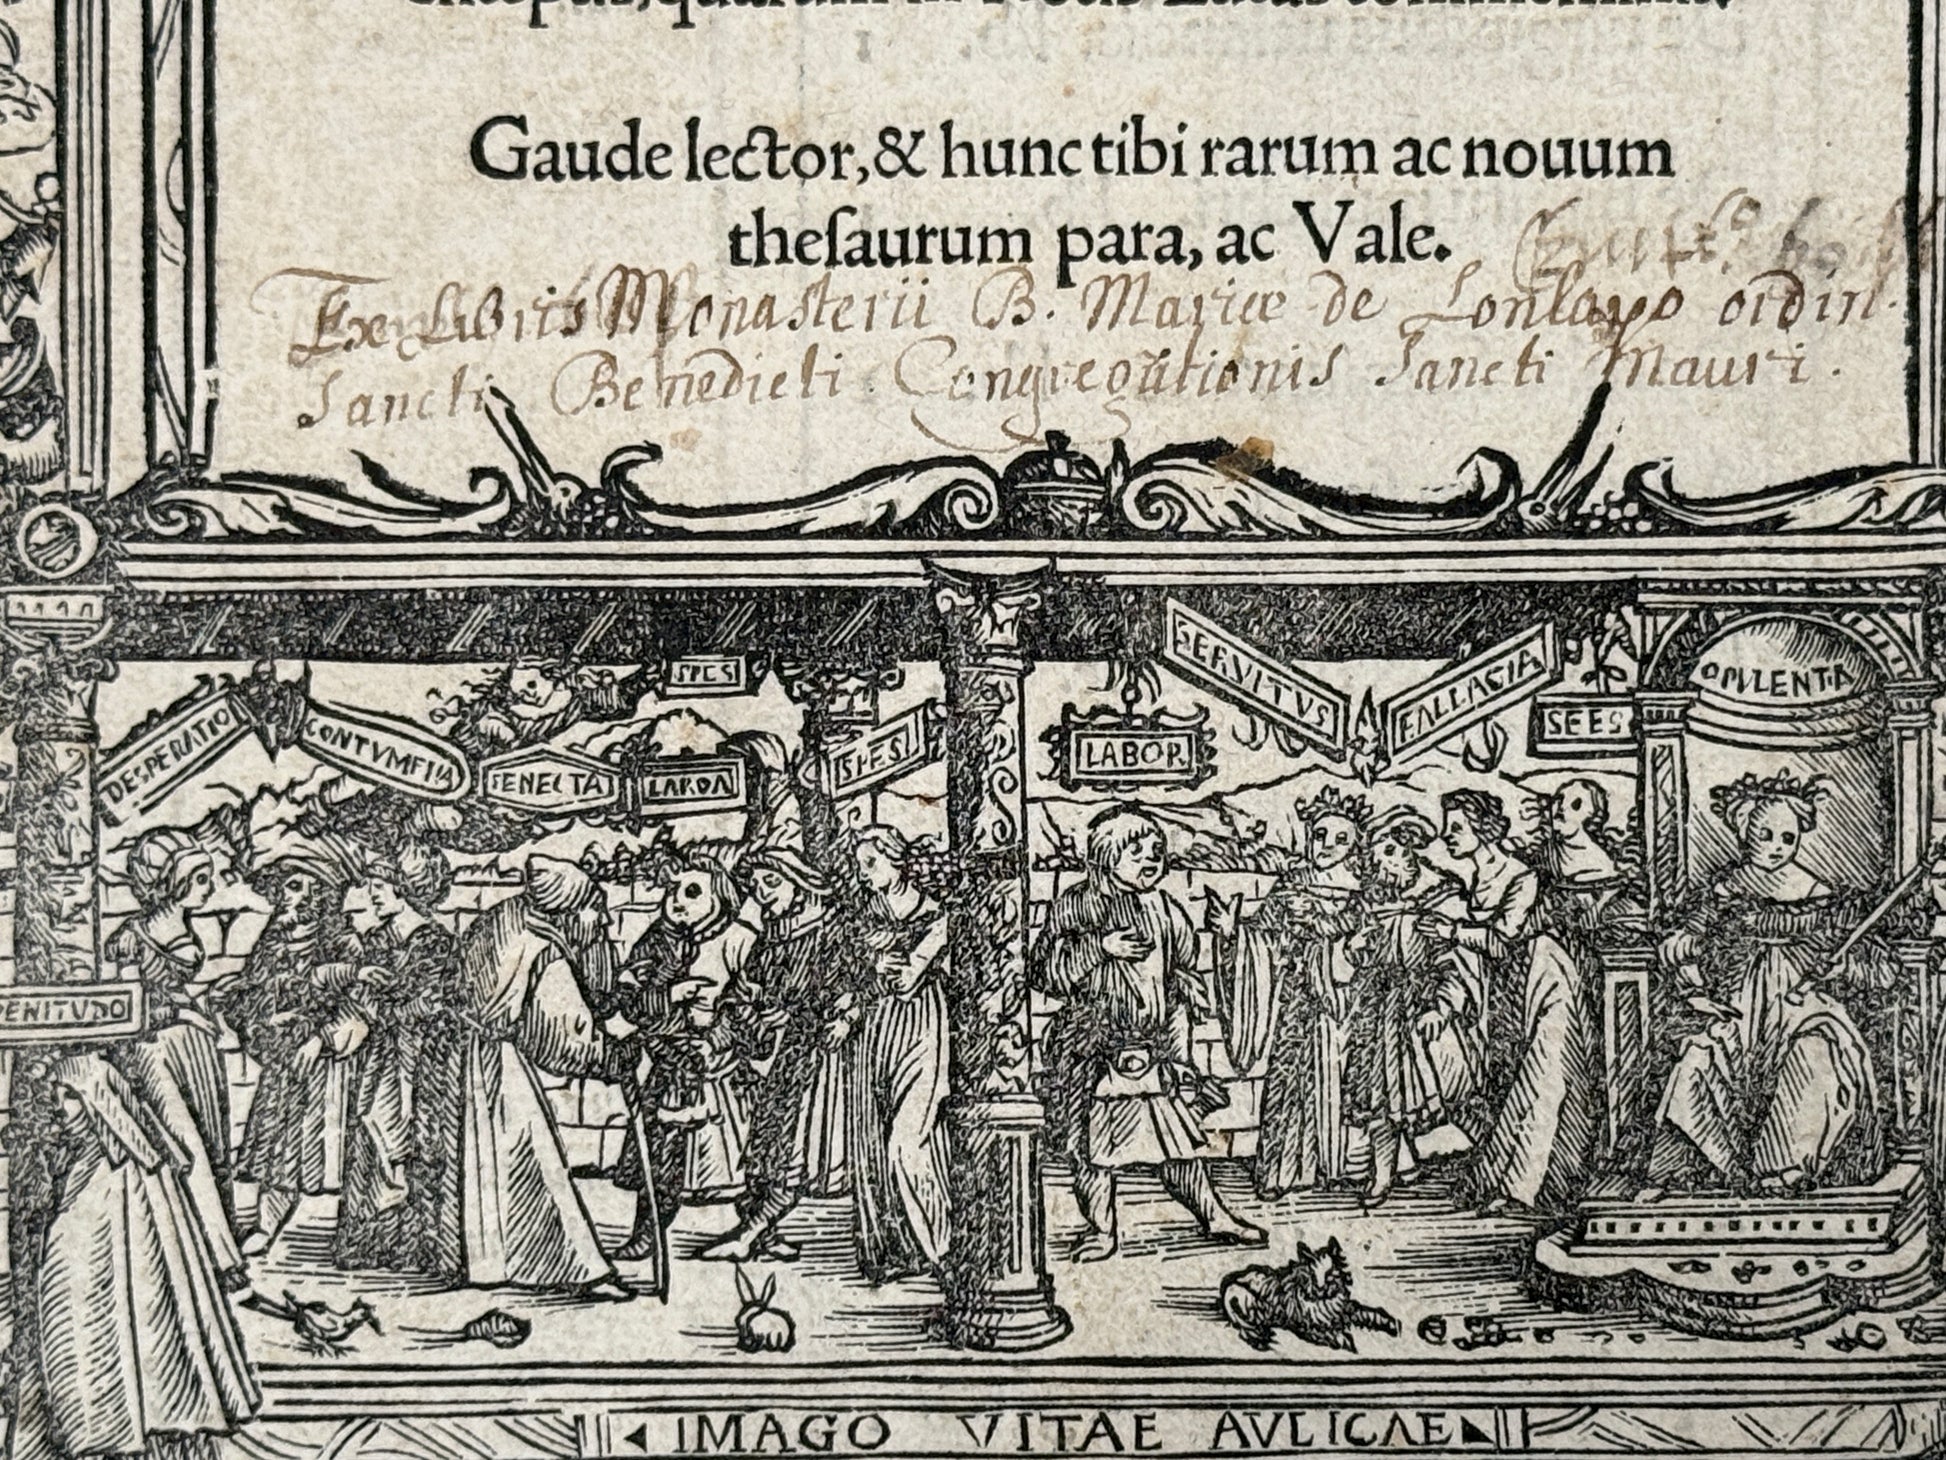 Gaude lector, & hunc tibi rarum ac nouum
theſaurum para, ac Vale.
Ex Libris Monasterii B. Mariæ de Lonlayo ordin.
Sancti Benedicti Congregationis Sancti Mauri.
SPES
SERVITVS
FALLACIA
OPVLENTIA
DESPERATIO
CONTVMELIA
SENECTA
LABOR
SPES
LABOR
SEES
PENITVDO
IMAGO VITAE AVLICAE